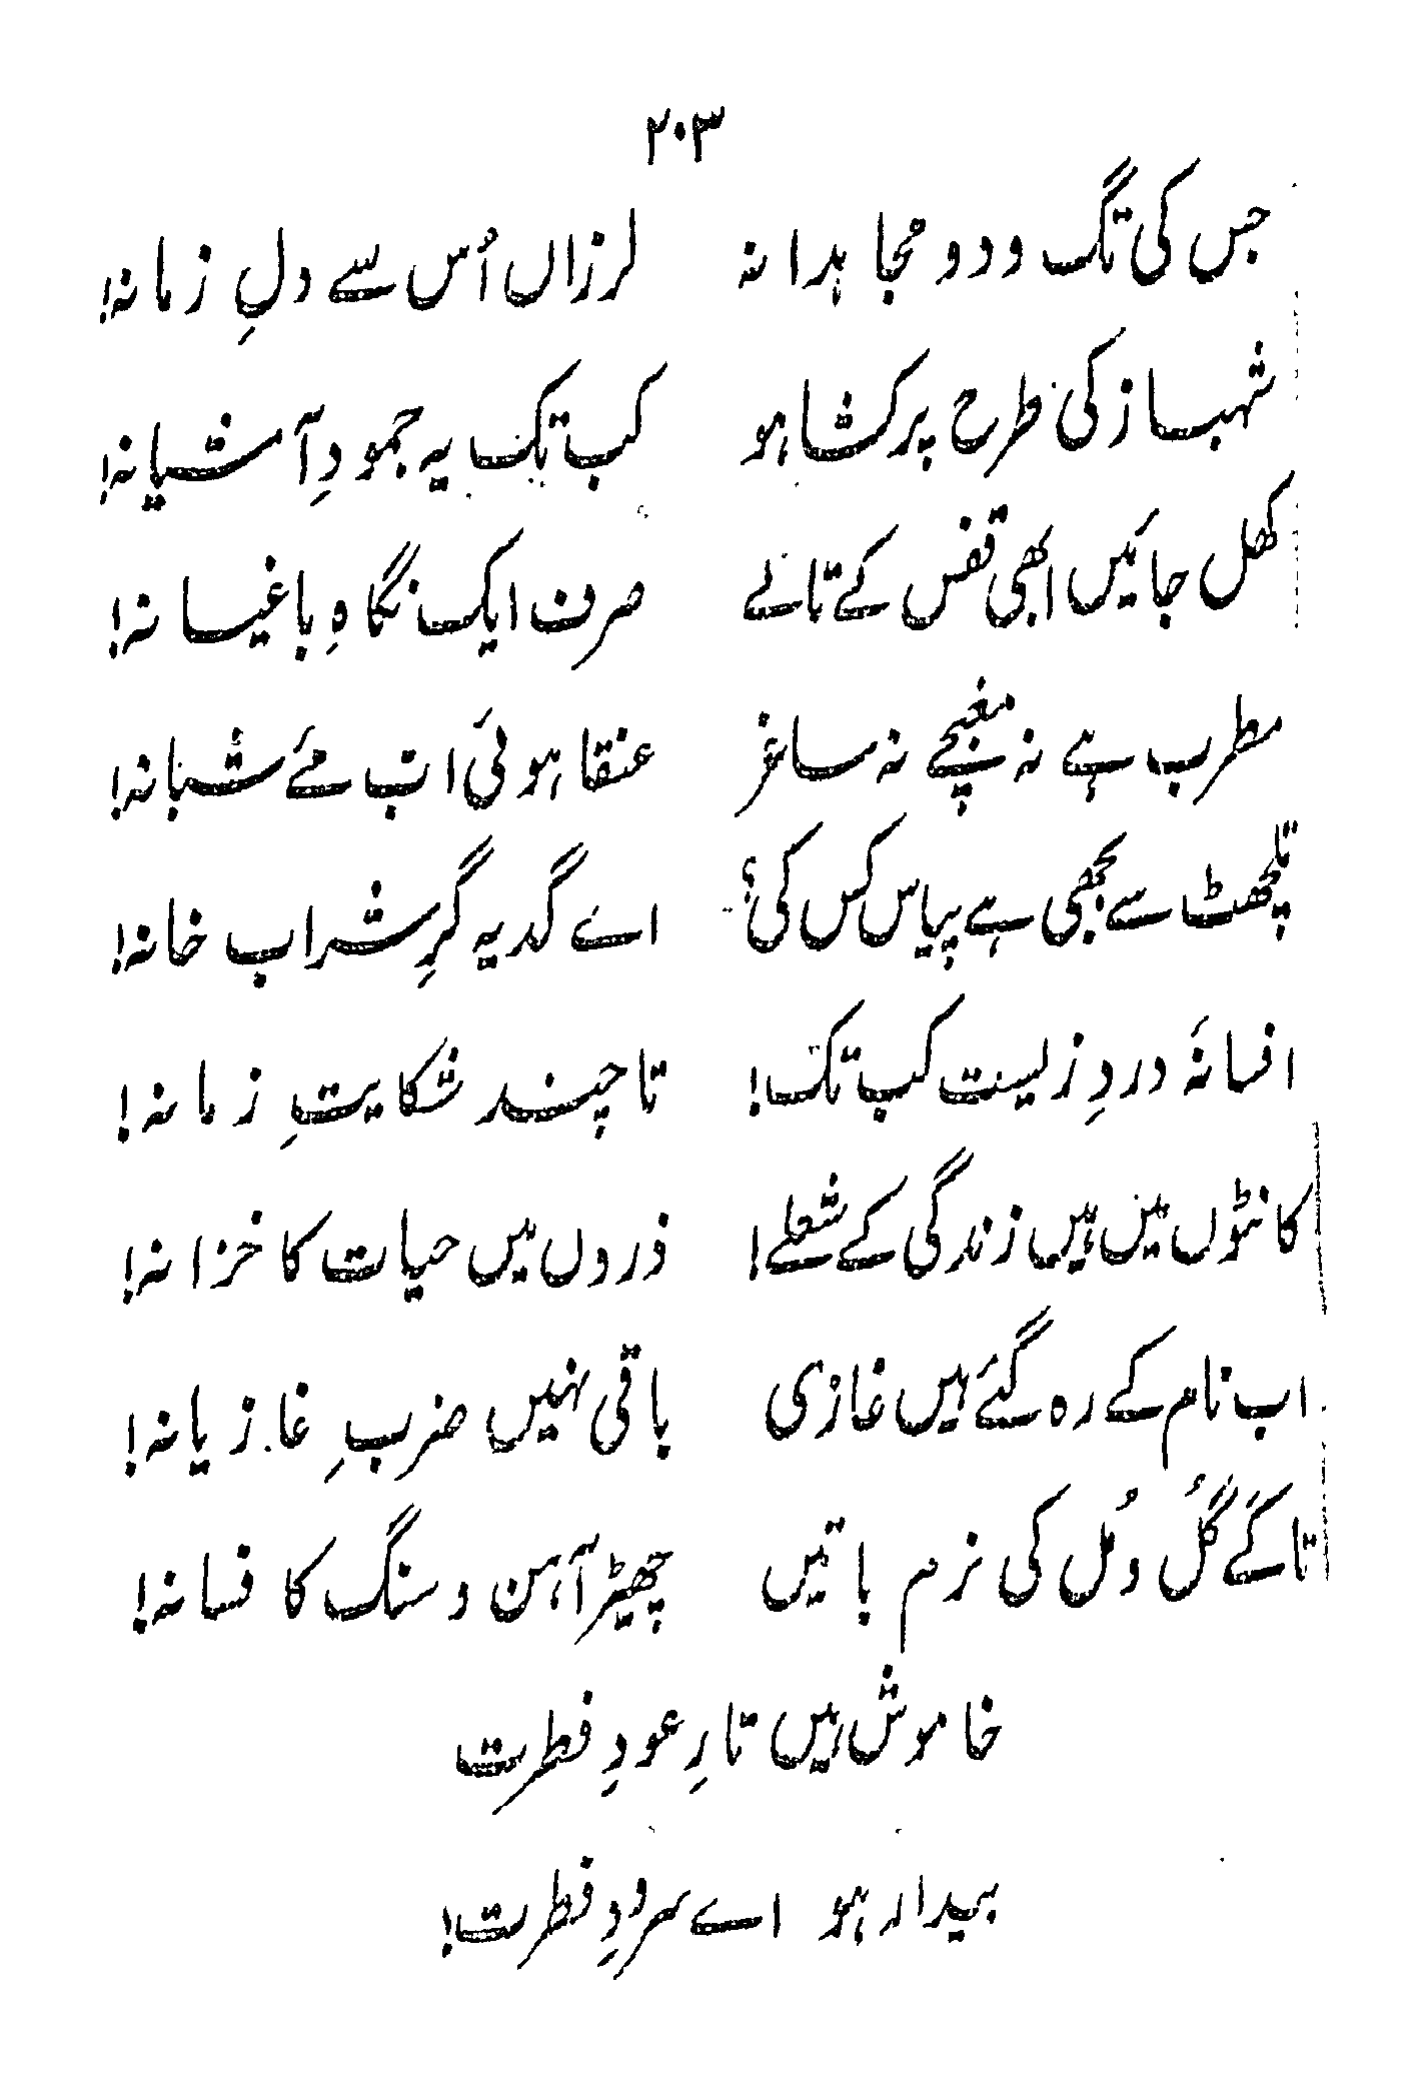 ۲۰۳
جس کی تگ و دو مجاہدانہ لرزاں اُس سے دلِ زمانہ!
شہباز کی طرح پر کشا ہو کب تک یہ جمودِ آشیانہ!
کھل جائیں ابھی قفس کے تالے صرف ایک نگاہِ باغیانہ!
مطرب ہے نہ مغبچے نہ ساغر عنقا ہوئی اب مۓ شبانہ!
تلچھٹ سے بجھی ہے پیاس کس کی؟ اے گدیہ گرِ شراب خانہ!
افسانۂ دردِ زیست کب تک! تا چند شکایتِ زمانہ!
کانٹوں میں ہیں زندگی کے شعلے! ذروں میں حیات کا خزانہ!
اب نام کے رہ گئے ہیں غازی باقی نہیں ضربِ غازیانہ!
تاکَے گُل و مُل کی نرم باتیں چھیڑ آہن و سنگ کا فسانہ!
خاموش ہیں تارِ عودِ فطرت
بیدار ہو اے سرودِ فطرت!